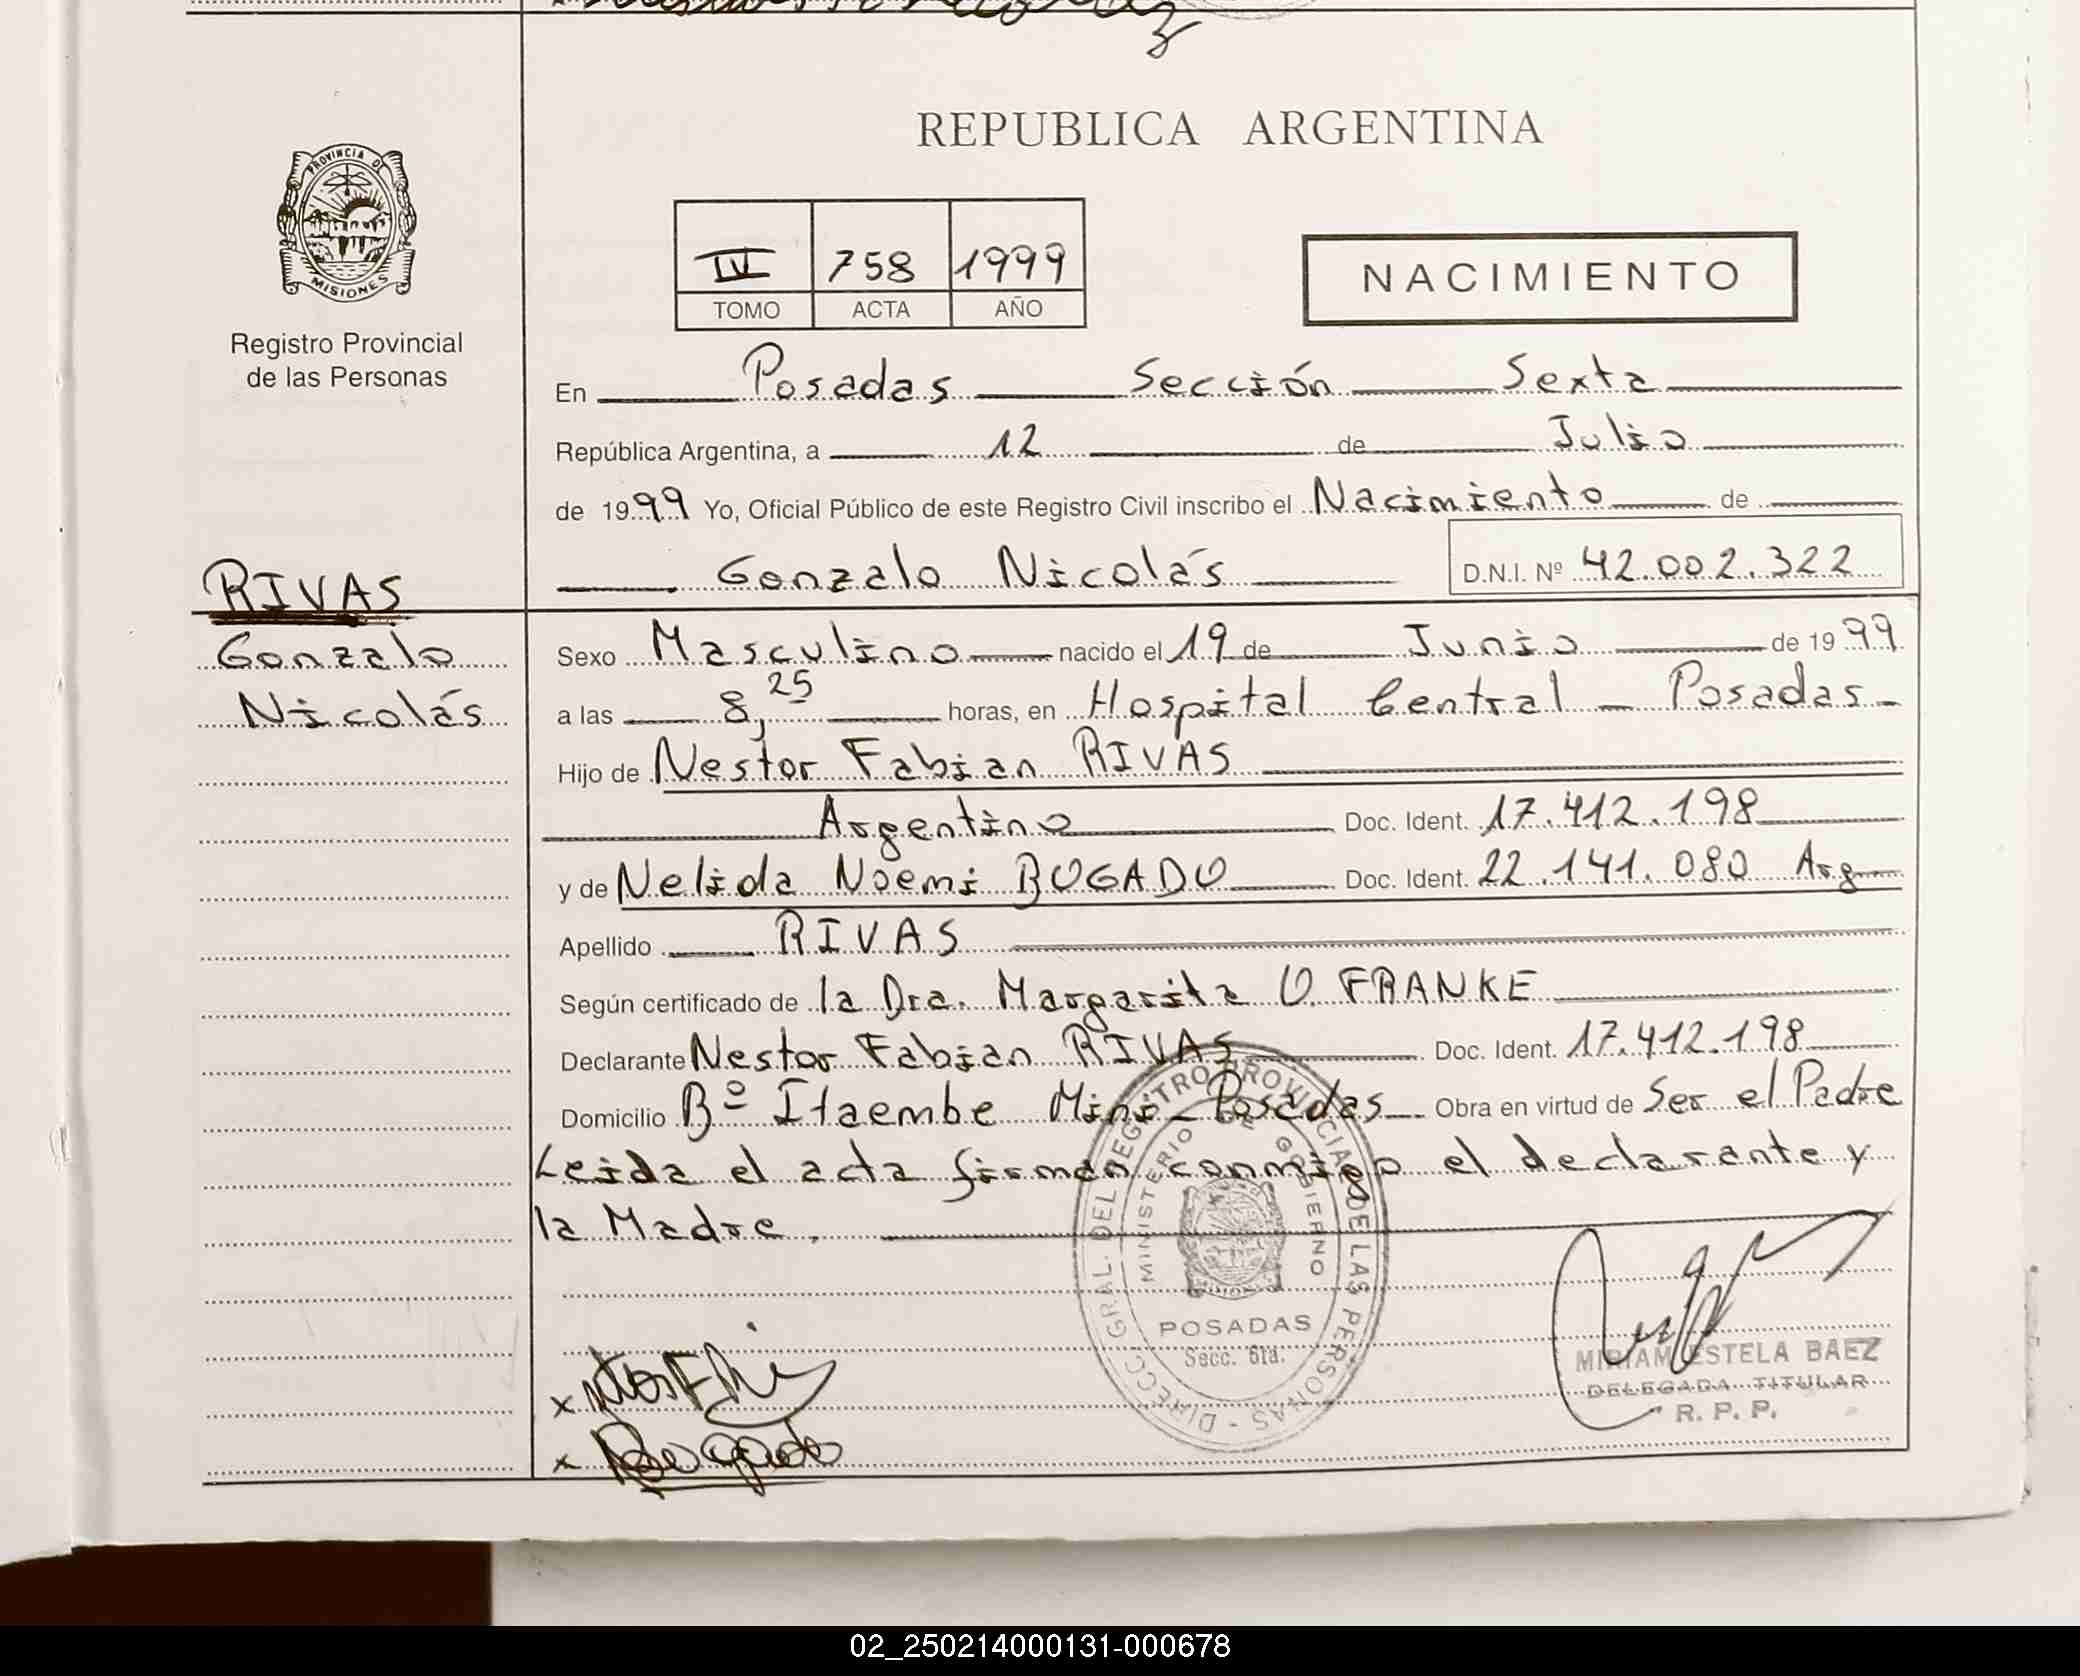 REPUBLICA ARGENTINA
PROVINCIA DE
MISIONES
Registro Provincial
de las Personas
IV 758 1999
TOMO ACTA AÑO
NACIMIENTO
En Posadas Sección Sexta
República Argentina, a 12 de Julio
de 1999 Yo, Oficial Público de este Registro Civil inscribo el Nacimiento de
Gonzalo Nicolás D.N.I. Nº 42.002.322
RIVAS
Gonzalo
Nicolás
Sexo Masculino nacido el 19 de Junio de 1999
a las 8,25 horas, en Hospital Central - Posadas-
Hijo de Nestor Fabian RIVAS
Argentino Doc. Ident. 17.412.198
y de Nelida Noemi BOGADO Doc. Ident. 22.141.080 Arg
Apellido RIVAS
Según certificado de la Dra. Margarita O. FRANKE
Declarante Nestor Fabian RIVAS Doc. Ident. 17.412.198
Domicilio Bº Itaembe Mini - Posadas Obra en virtud de Ser el Padre
Leida el acta firman conmigo el declarante y
la Madre.
DIRECC. GRAL. DEL REGISTRO PROVINCIAL DE LAS PERSONAS -
MINISTERIO DE GOBIERNO
POSADAS
Secc. 6ta.
MIRIAM ESTELA BAEZ
DELEGADA TITULAR
R. P. P.
x
x Bogado
02_250214000131-000678